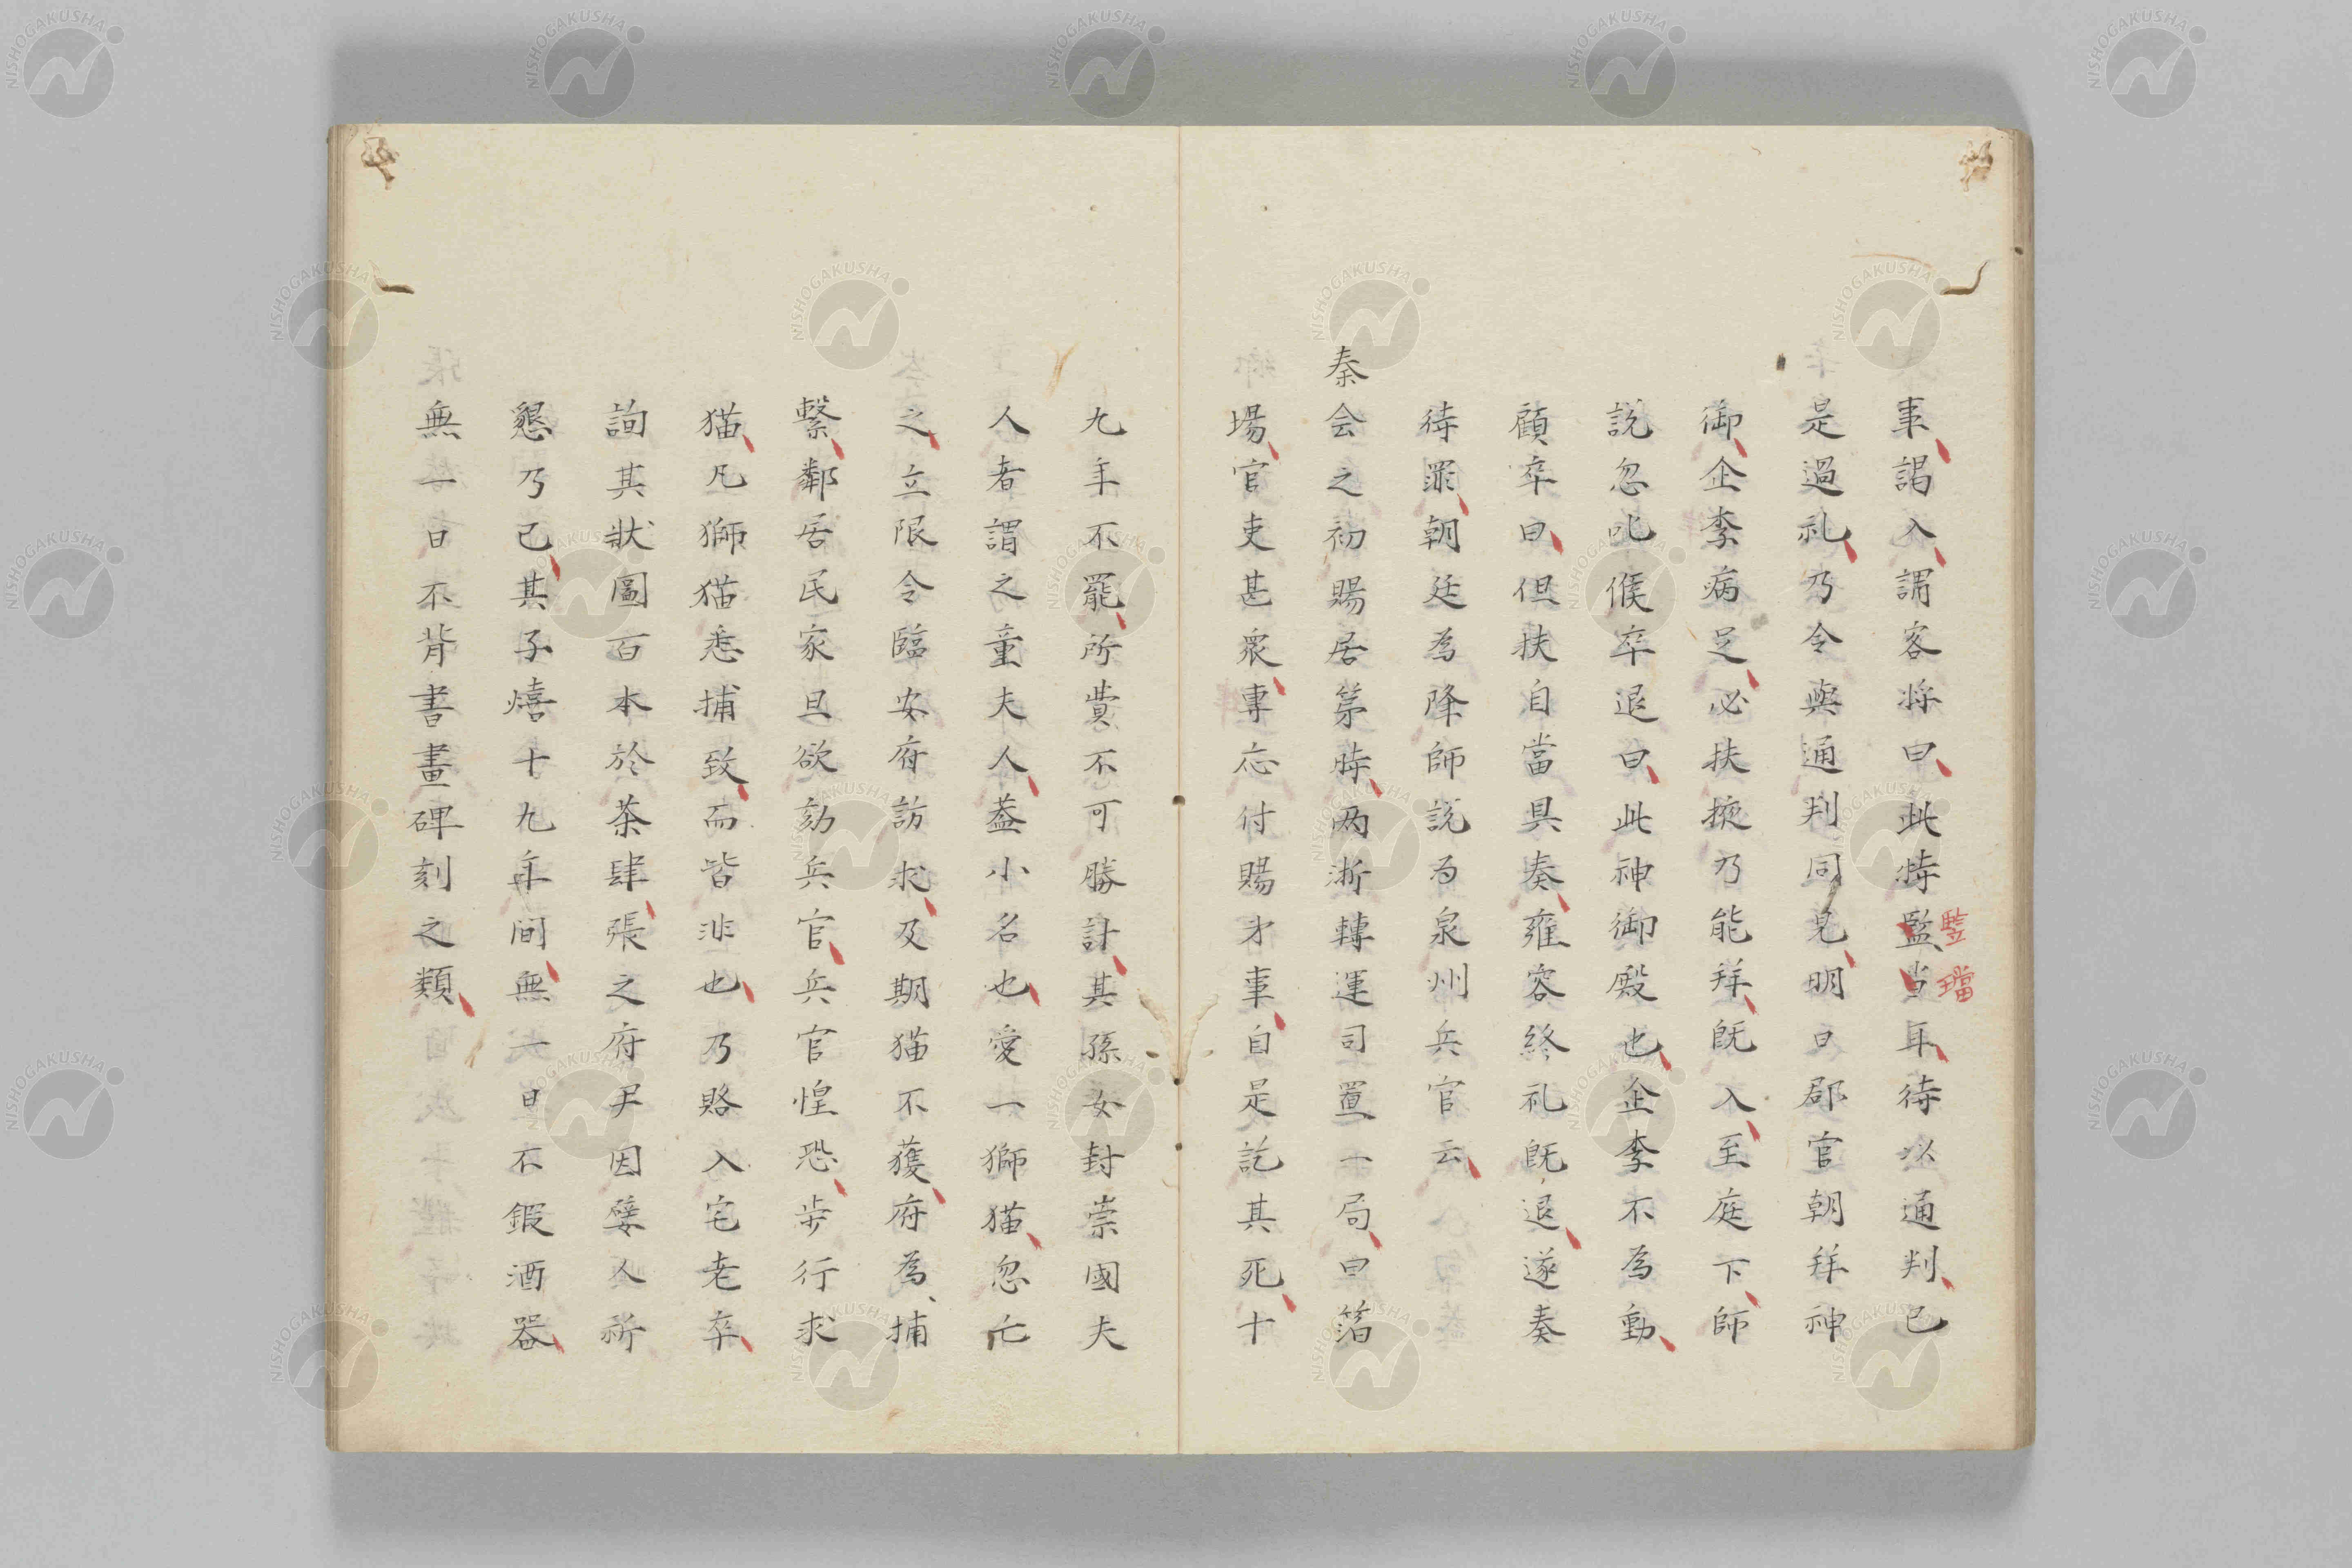 事謁入謂客将曰此特監当耳待以通判已
監璫
是過礼乃令與通判同見明日郡官朝拜神
御企李病足必扶掖乃能拜既入至庭下師
説忽叱候卒退曰此神御殿也企李不為動
顧卒曰但扶自當具奏雍容終礼既退遂奏
待罪朝廷為降師説为泉州兵官云
秦会之初賜居第時两浙轉運司置一局曰箔
場官吏甚衆專応付賜才事自是訖其死十
九年不罷所費不可勝計其孫女封崇國夫
人者謂之童夫人葢小名也愛一獅猫忽亡
之立限令臨安府訪求及期猫不獲府為捕
繫鄰居民家且欲劾兵官兵官惶恐步行求
猫凡獅猫悉捕致而皆非也乃賂入宅老卒
詢其狀圖百本於茶肆張之府尹因嬖人祈
懇乃已其子熺十九年间無一日不鍜酒器
無一日不背書畫碑刻之類
NISHOGAKUSHA